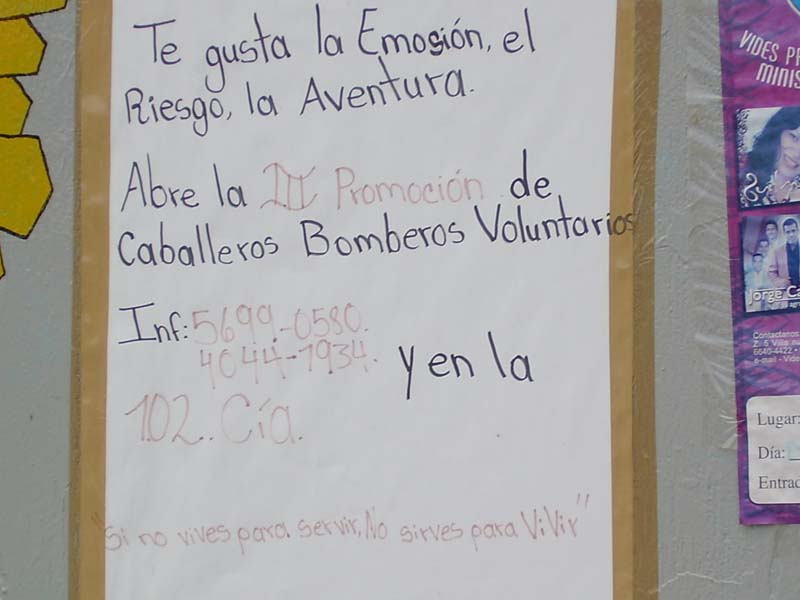 Te gusta la Emosión, el
Riesgo, la Aventura.
Abre la III Promoción de
Caballeros Bomberos Voluntarios
Inf: 5699-0580.
4044-1934. y en la
102. Cía.
"Si no vives para servir, No sirves para ViVir"
VIDES PR
MINIS
Jorge Ca
Contactenos
Z. 6 Villa nu
6640-4422 •
e-mail - Vide
Lugar:
Día:
Entrad